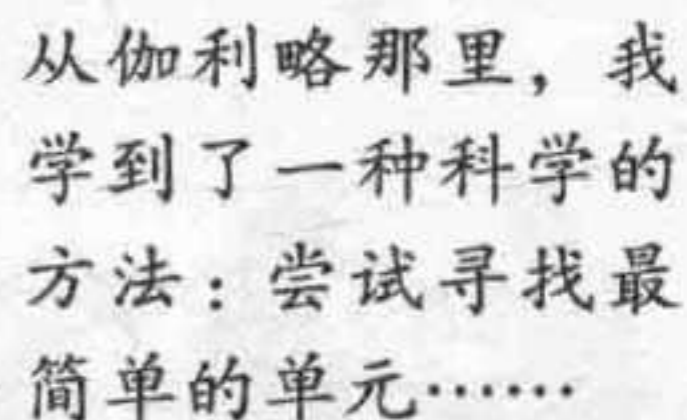 从伽利略那里，我
学到了一种科学的
方法：尝试寻找最
简单的单元……